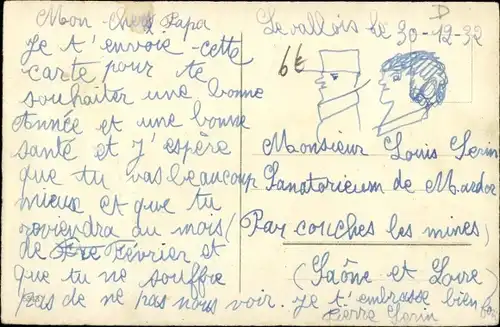 Mon cher Papa
Je t'envoie cette
carte pour te
souhaiter une bonne
Année et une bonne
santé et J'espère
que tu vas beaucoup
mieux et que tu
reviendra au mois
de Février et
que tu ne souffre
pas de ne pas nous voir. Je t'embrasse bien
Pierre Serin
Levallois le 30-12-32
D
6t
Monsieur Louis Serin
Sanatorieum de Mardor
Par couches les mines
(Saône et Loire)